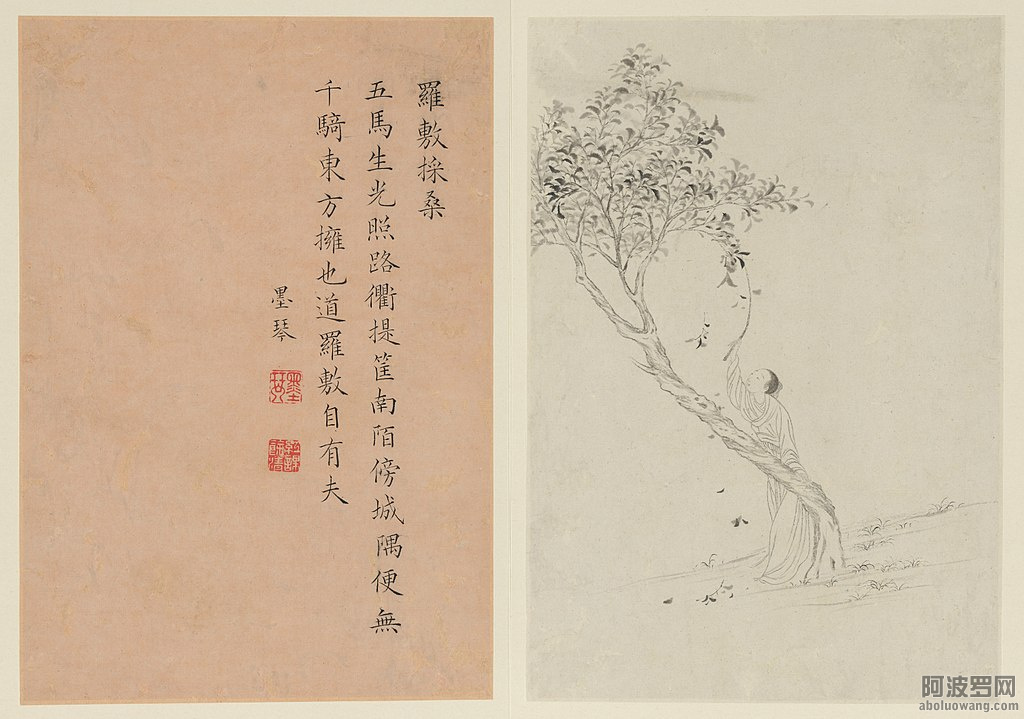 羅敷採桑
五馬生光照路衢提筐南陌傍城隅便無
千騎東方擁也道羅敷自有夫
墨琴
墨琴
阿波罗网
aboluowang.com